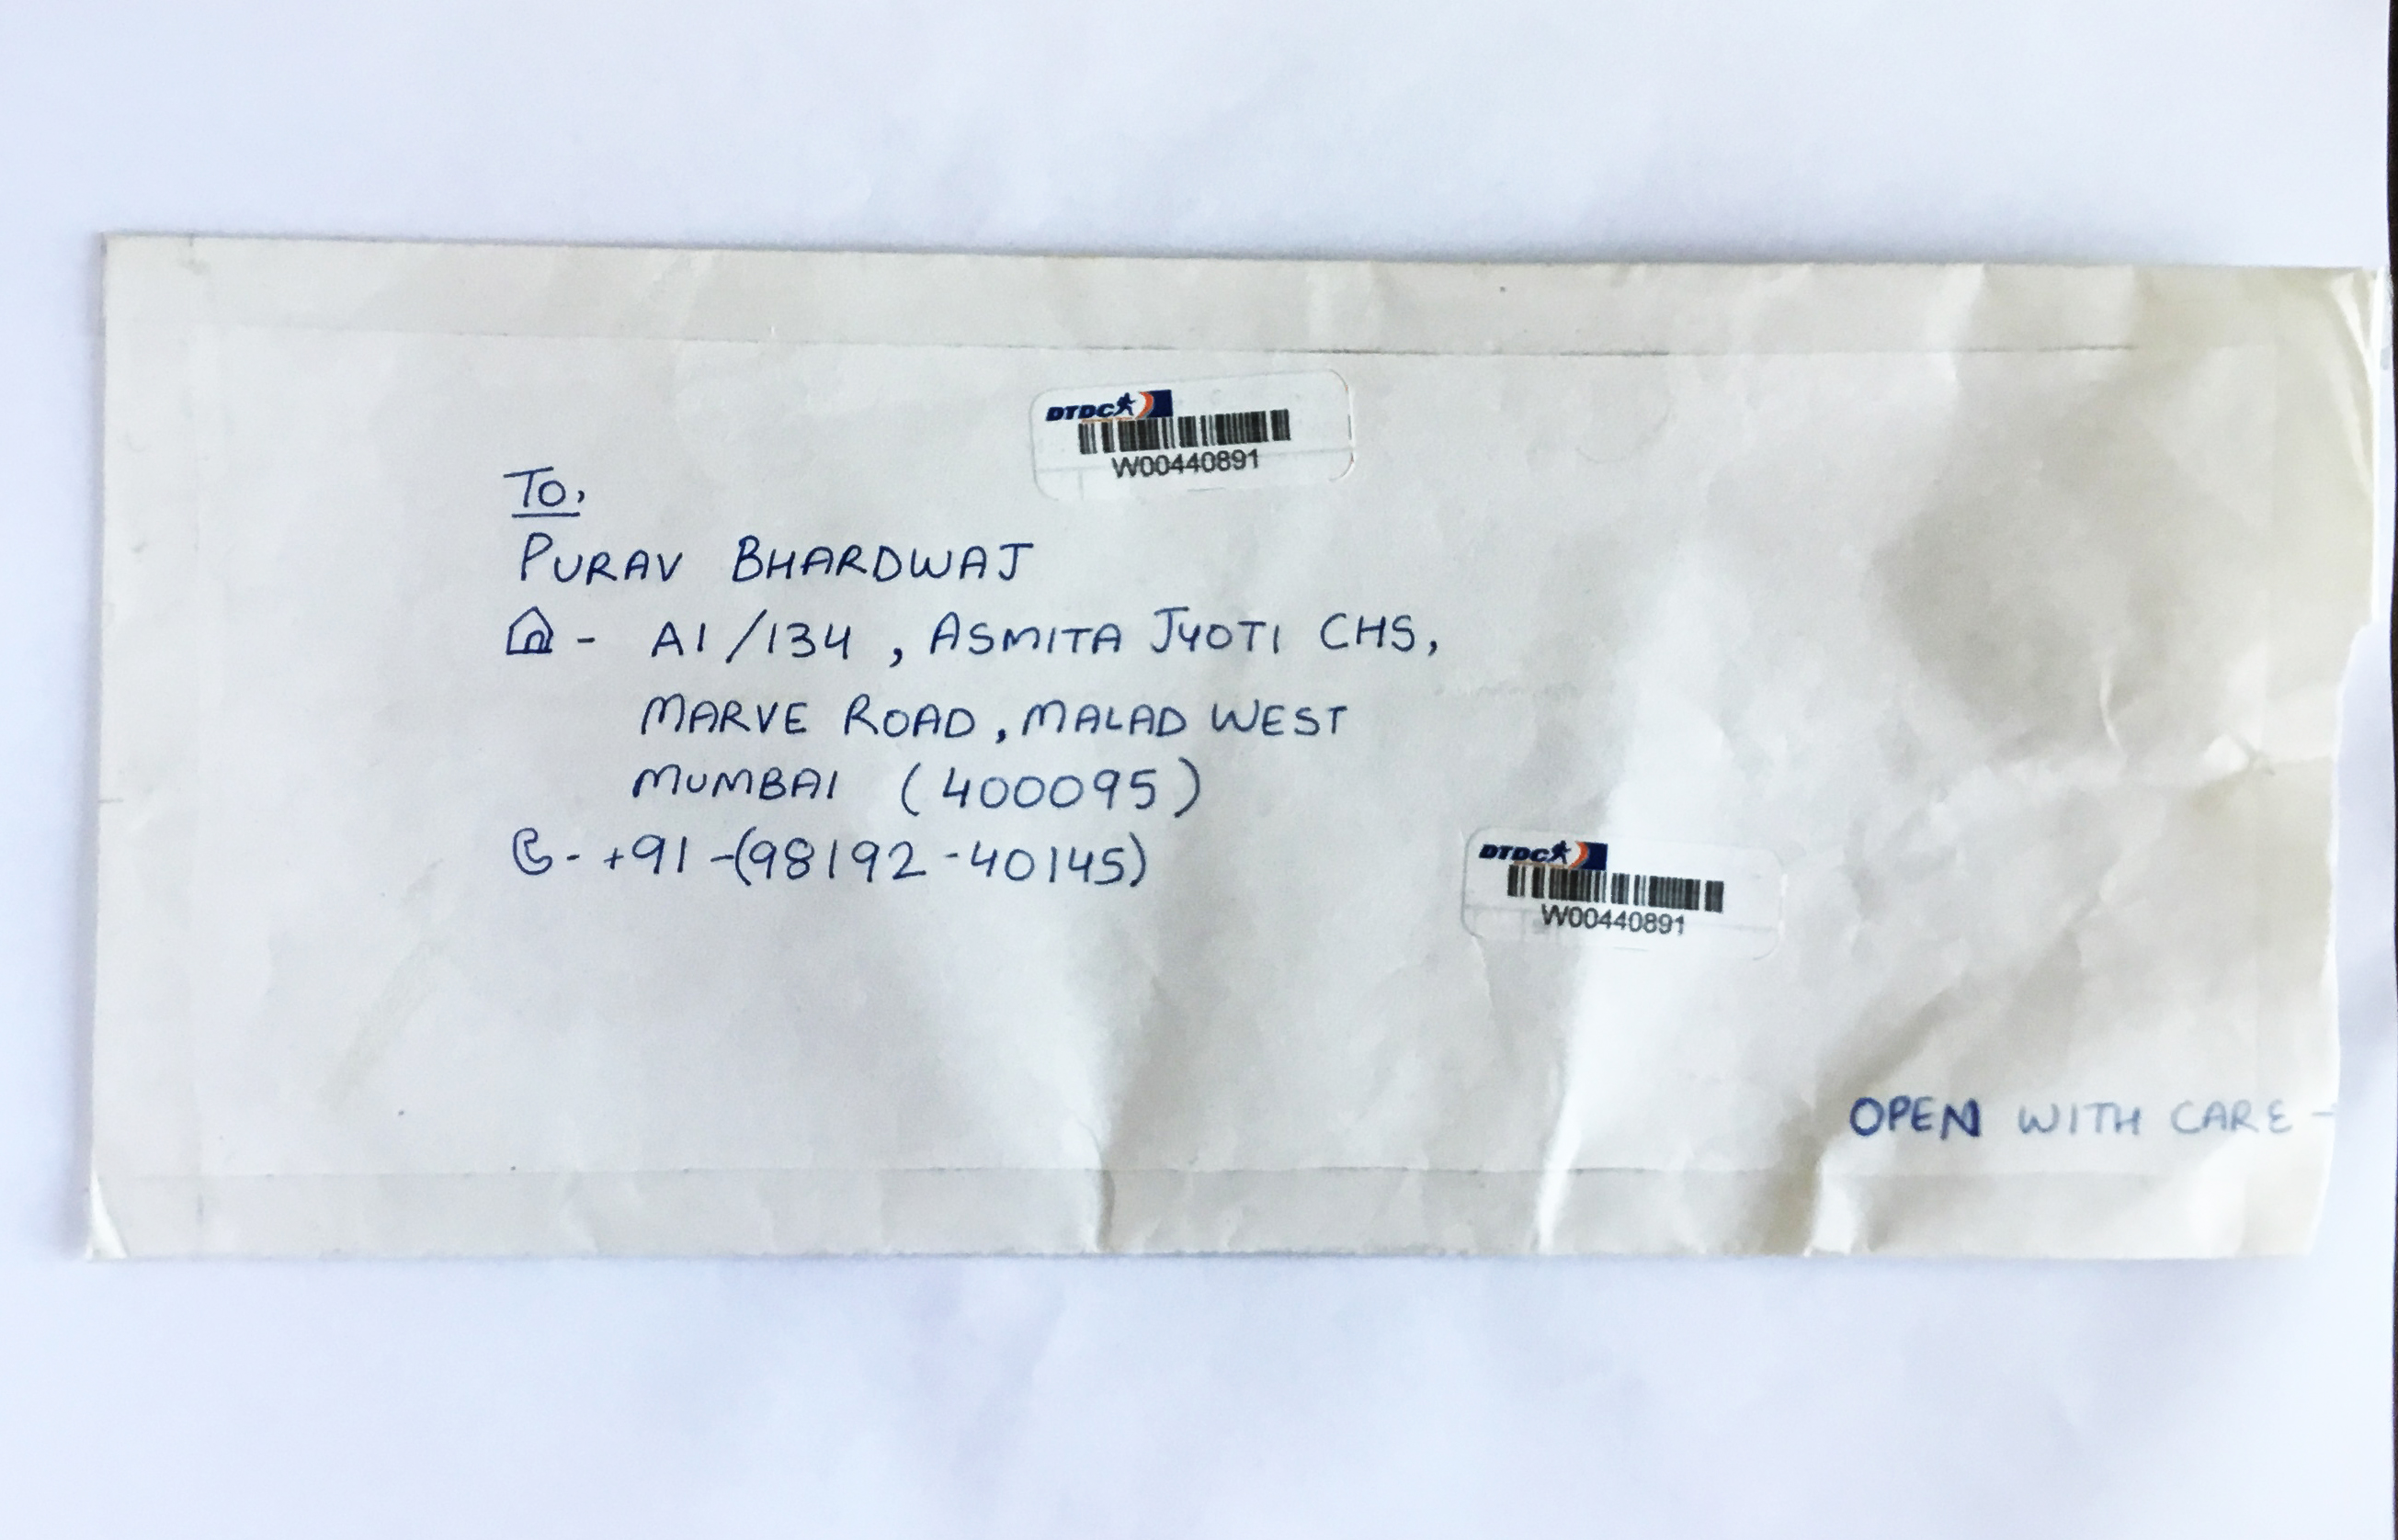 DTDC
W00440891
To,
PURAV BHARDWAJ
- A1/134, ASMITA JYOTI CHS,
MARVE ROAD, MALAD WEST
MUMBAI (400095)
- +91-(98192-40145)
DTDC
W00440891
OPEN WITH CARE -